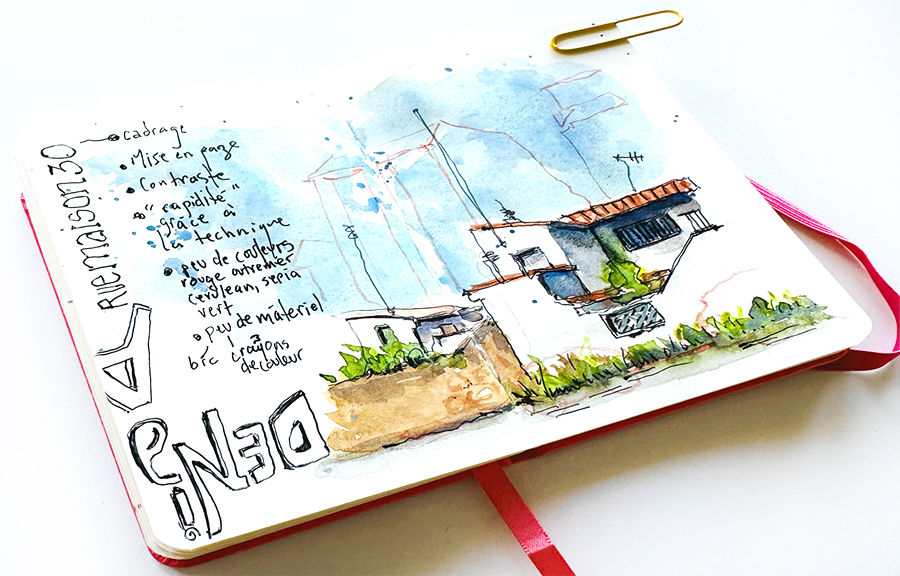 • cadrage
• Mise en page
• Contraste
• "rapidité"
grâce à
la technique
• peu de couleurs
rouge outremer
cerulean, sepia
vert
• peu de matériel
bic
crayons
de couleur
DENiA